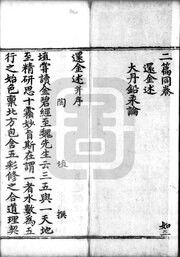 二篇同卷
還金述
大丹鉛汞論
還金述并序
陶　埴　撰
埴嘗讀金碧經至魏先生云三五與一天地
至精研思十霜妙旨斯在謂一者水數為五
行之始色稟北方包含五彩修之合道理契